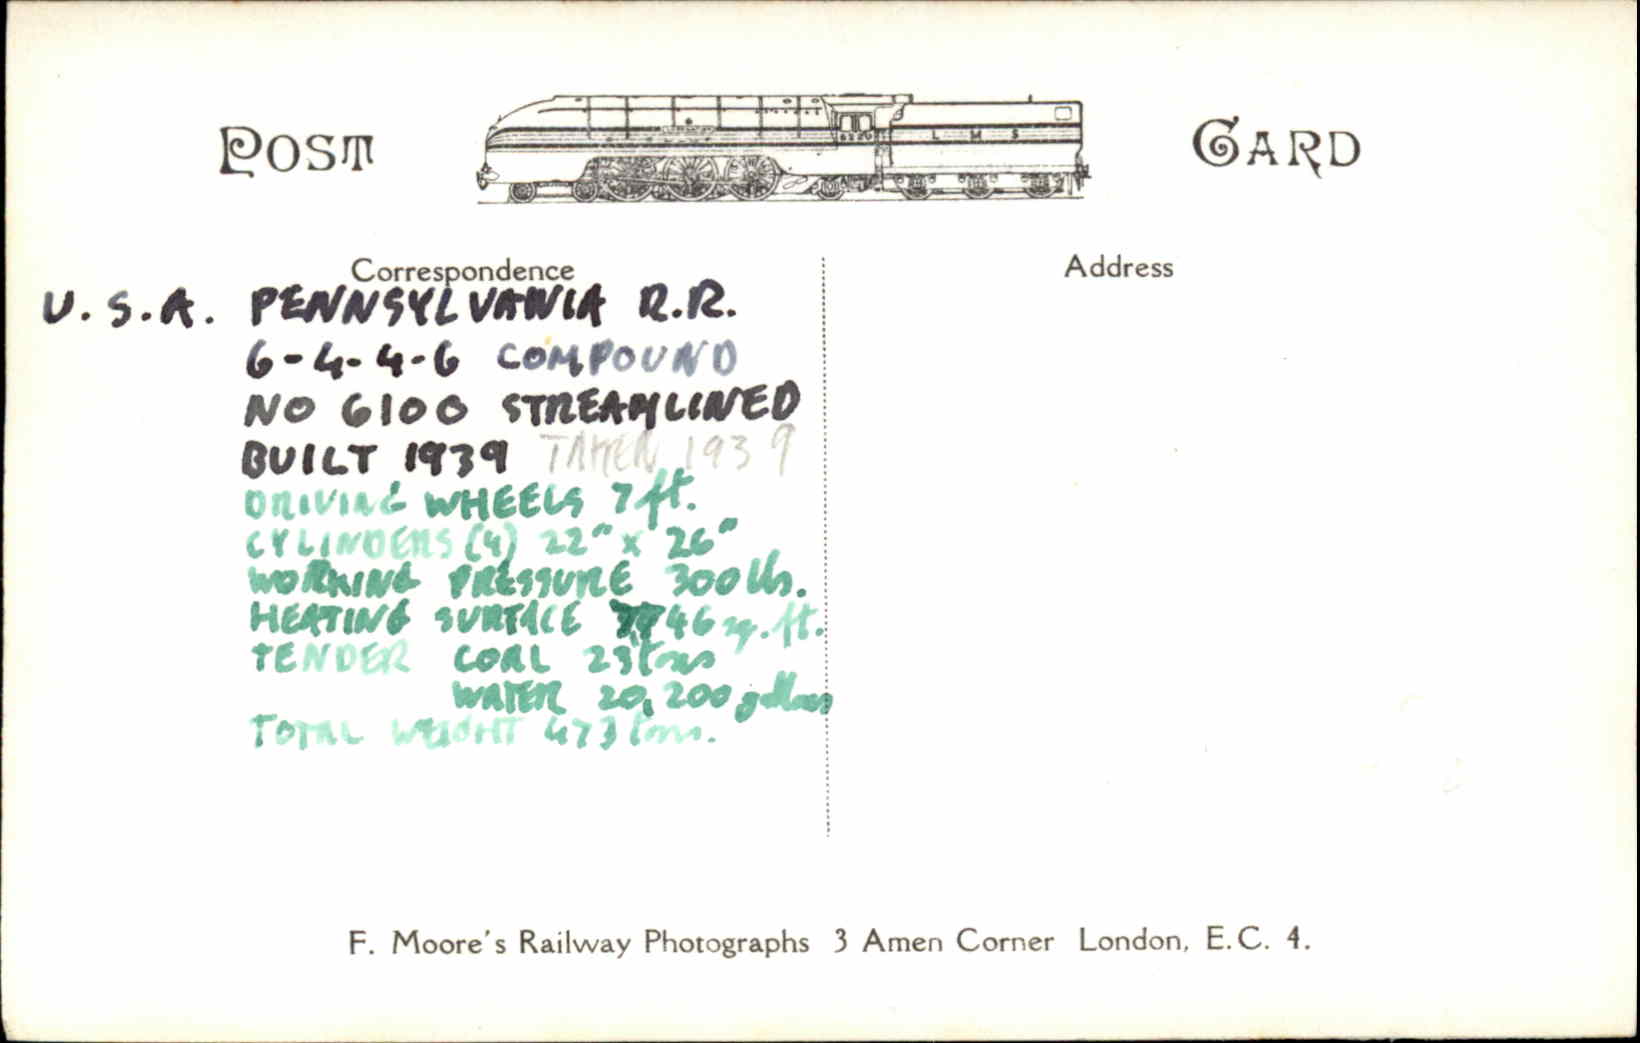 POST CARD
6220 L M S
Correspondence
Address
U.S.A. PENNSYLVANIA R.R.
6-4-4-6 COMPOUND
NO 6100 STREAMLINED
BUILT 1939 TAKEN 1939
DRIVING WHEELS 7 ft.
CYLINDERS (4) 22" x 26"
WORKING PRESSURE 300 lbs.
HEATING SURFACE 7746 sq. ft.
TENDER COAL 23 tons
WATER 20,200 gallons
TOTAL WEIGHT 473 tons.
F. Moore's Railway Photographs 3 Amen Corner London, E.C. 4.